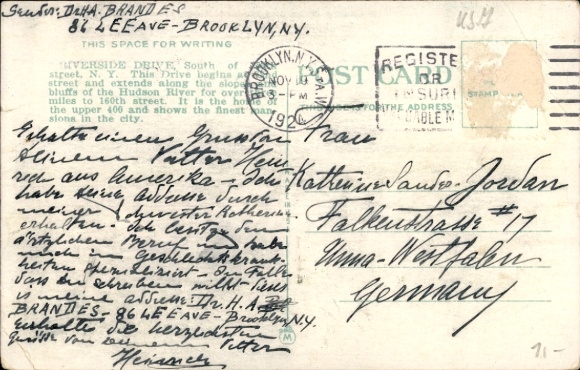 Sender: Dr. H.A. BRANDES
864 LEE AVE - BROOKLYN, N.Y.
THIS SPACE FOR WRITING
RIVERSIDE DRIVE, South of
street, N. Y. This Drive begins at
street and extends along the slope
bluffs of the Hudson River for over
miles to 160th street. It is the home of
the upper 400 and shows the finest man-
sions in the city.
BROOKLYN, N.Y.
NOV 10
PM
192
POST CARD
REGISTE
OR
INSURE
VALUABLE M
THE ADDRESS
Erhalte einen Gruss von
Deinem Vetter Hein
rich aus Amerika - Ich
habe Deine Addresse durch
meiner Schwester
erhalten. Ich besitze den
ärtzlichen Beruf und habe
mich in Geschlechtskrank-
heiten spezialisiert - Im Falle
dass Du schreiben willst
is meine addresse: Dr. H. A.
BRANDES - 864 LEE AVE - Brooklyn, N.Y.
Erhalte die herzlichsten
Grüsse von Deinem Vetter
Heinrich
Frau
Katherine Sander-Jordan
Falkenstrasse #17
Unna-Westfalen
Germany
M